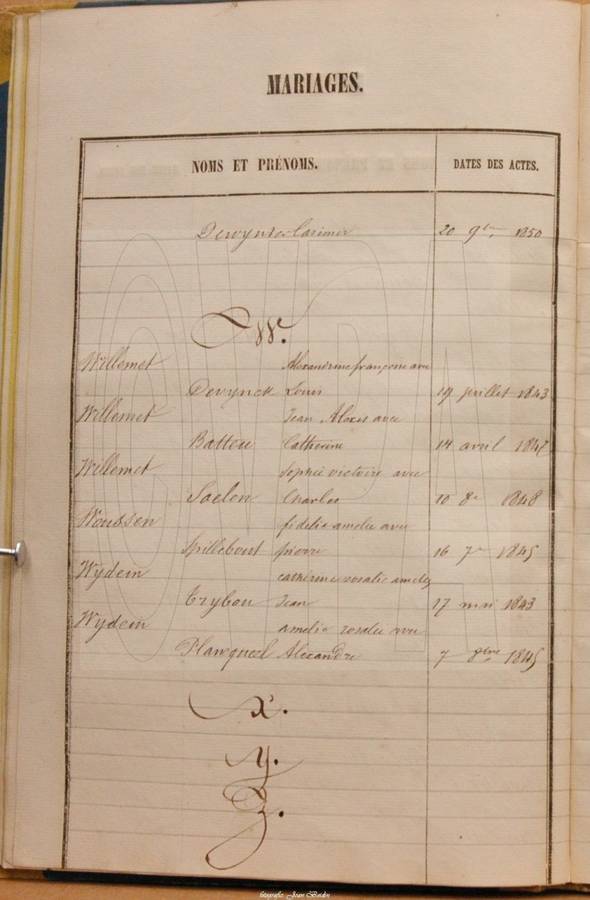 MARIAGES.
NOMS ET PRÉNOMS. DATES DES ACTES.
Casimir 20 9bre 1850
W.
Willemet Alexandrine françoise avec
Devynck Louis 19 juillet 1843
Willemet Jean Alexis avec
Batteu Catherine 14 avril 1847
Willemet Sophie victoire avec
Saelen Charles 10 8e 1848
Woussen fidélie amelie avec
Spillebout pierre 16 7e 1845
Wydein cathérine rosalie amelie
Trybou Jean 17 mai 1843
Wydein amelie rosalie avec
Plancqueel Alexandre 7 1845
X.
Y.
Z.
fotografie: Jean Baidin